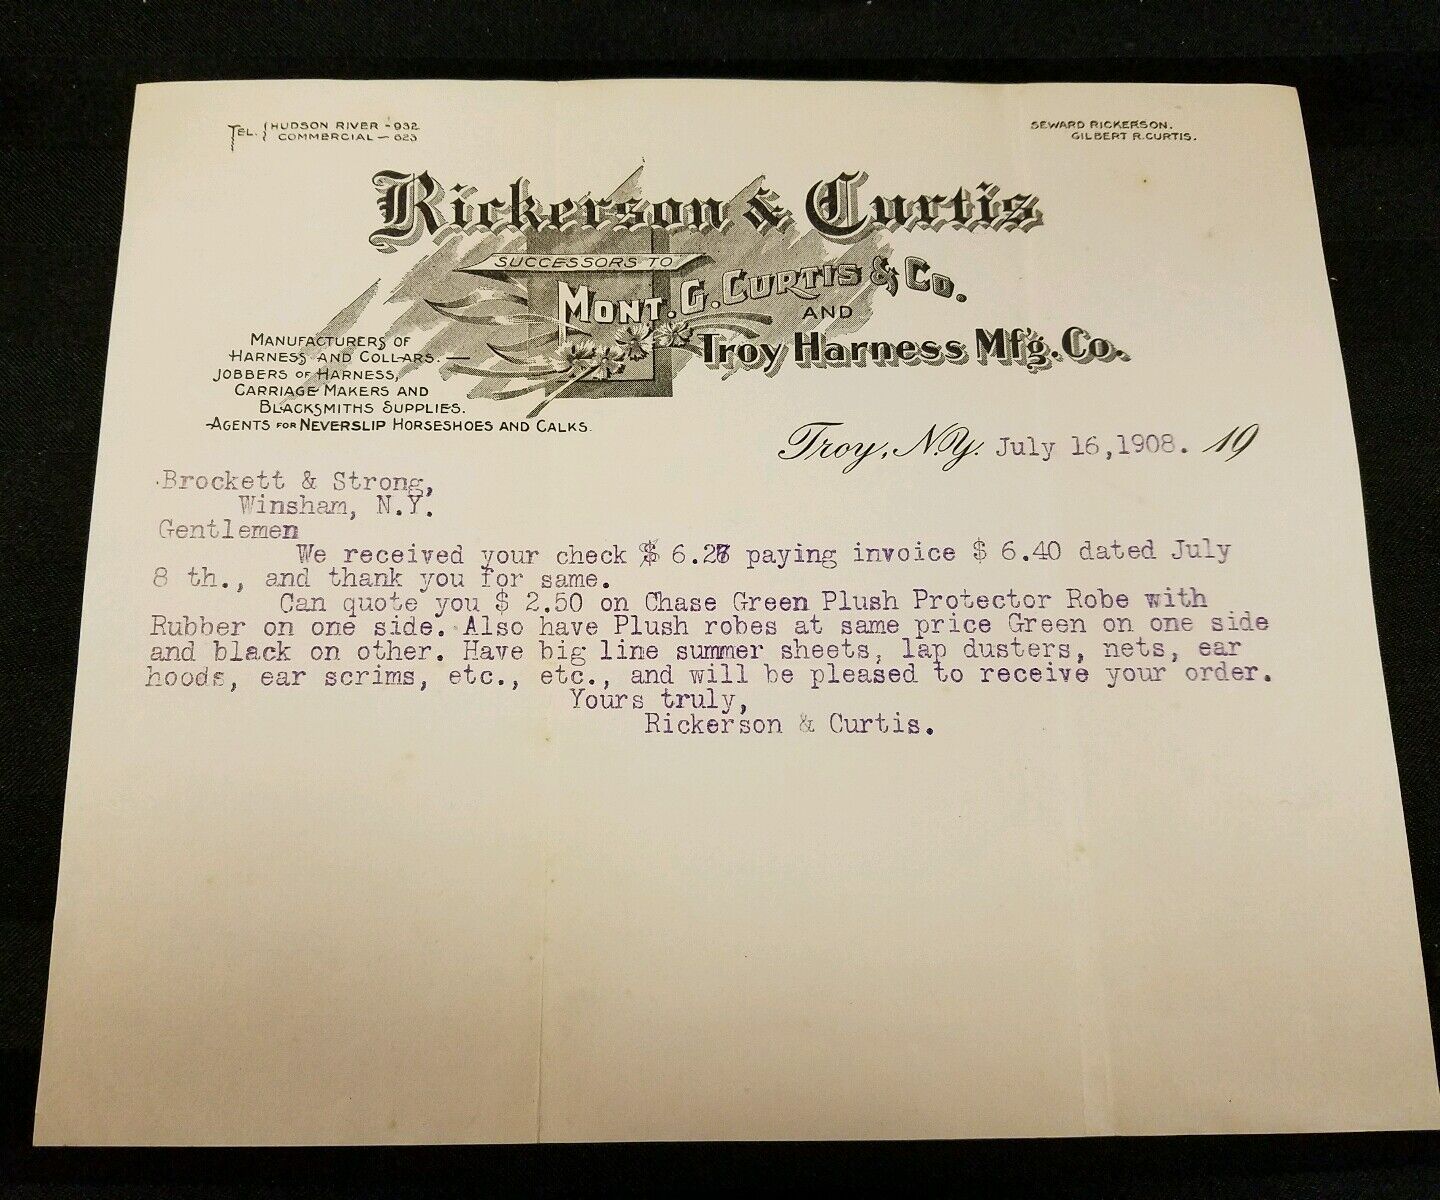 TEL. { HUDSON RIVER - 932
COMMERCIAL - 623
SEWARD RICKERSON.
GILBERT R. CURTIS.
Rickerson & Curtis
SUCCESSORS TO
MONT. G. CURTIS & CO.
AND
Troy Harness Mf'g. Co.
MANUFACTURERS OF
HARNESS AND COLLARS. —
JOBBERS OF HARNESS,
CARRIAGE MAKERS AND
BLACKSMITHS SUPPLIES.
AGENTS FOR NEVERSLIP HORSESHOES AND CALKS.
Troy, N.Y. July 16,1908. 19
Brockett & Strong,
Winsham, N.Y.
Gentlemen
We received your check $ paying invoice $ 6.40 dated July
8 th., and thank you for same.
Can quote you $ 2.50 on Chase Green Plush Protector Robe with
Rubber on one side. Also have Plush robes at same price Green on one side
and black on other. Have big line summer sheets, lap dusters, nets, ear
hoods, ear scrims, etc., etc., and will be pleased to receive your order.
Yours truly,
Rickerson & Curtis.